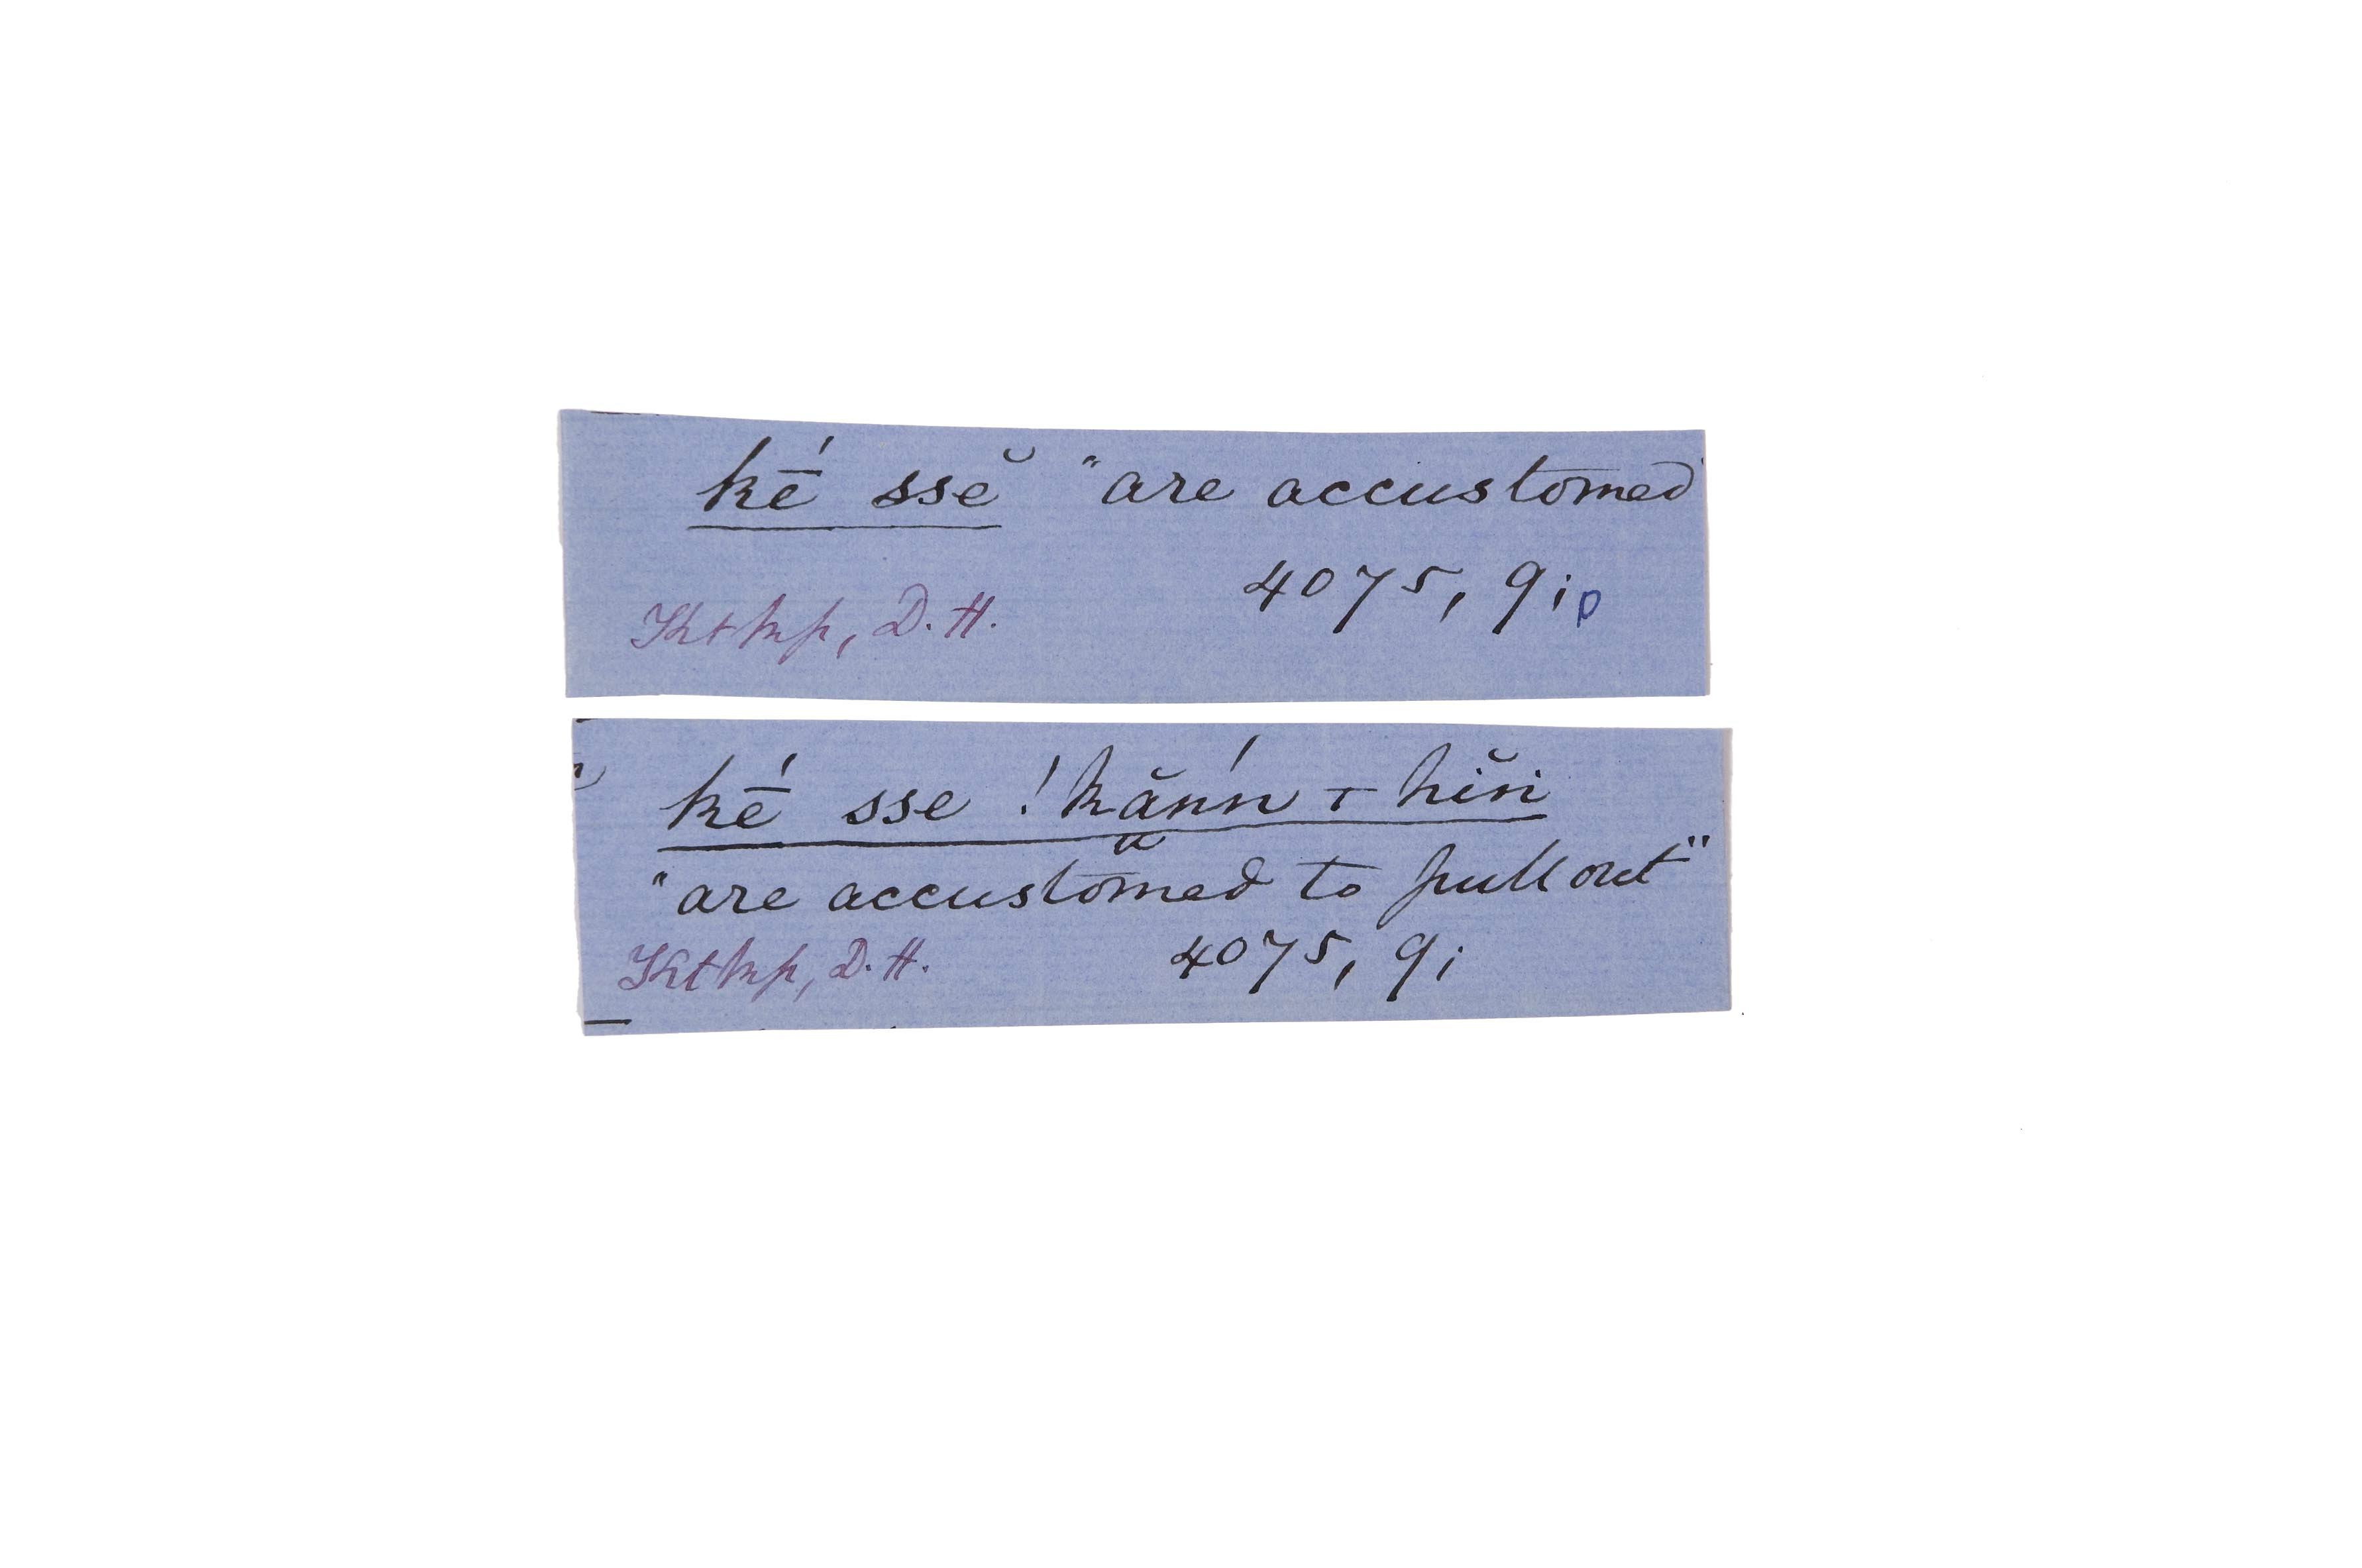 kḗ ssĕ "are accustomed
4075, 9ip
Ktkkp, D.H.
kḗ sse !kắṅṅ + hĭṅi
"are accustomed to pull out"
Ktkkp, D.H. 4075, 9i